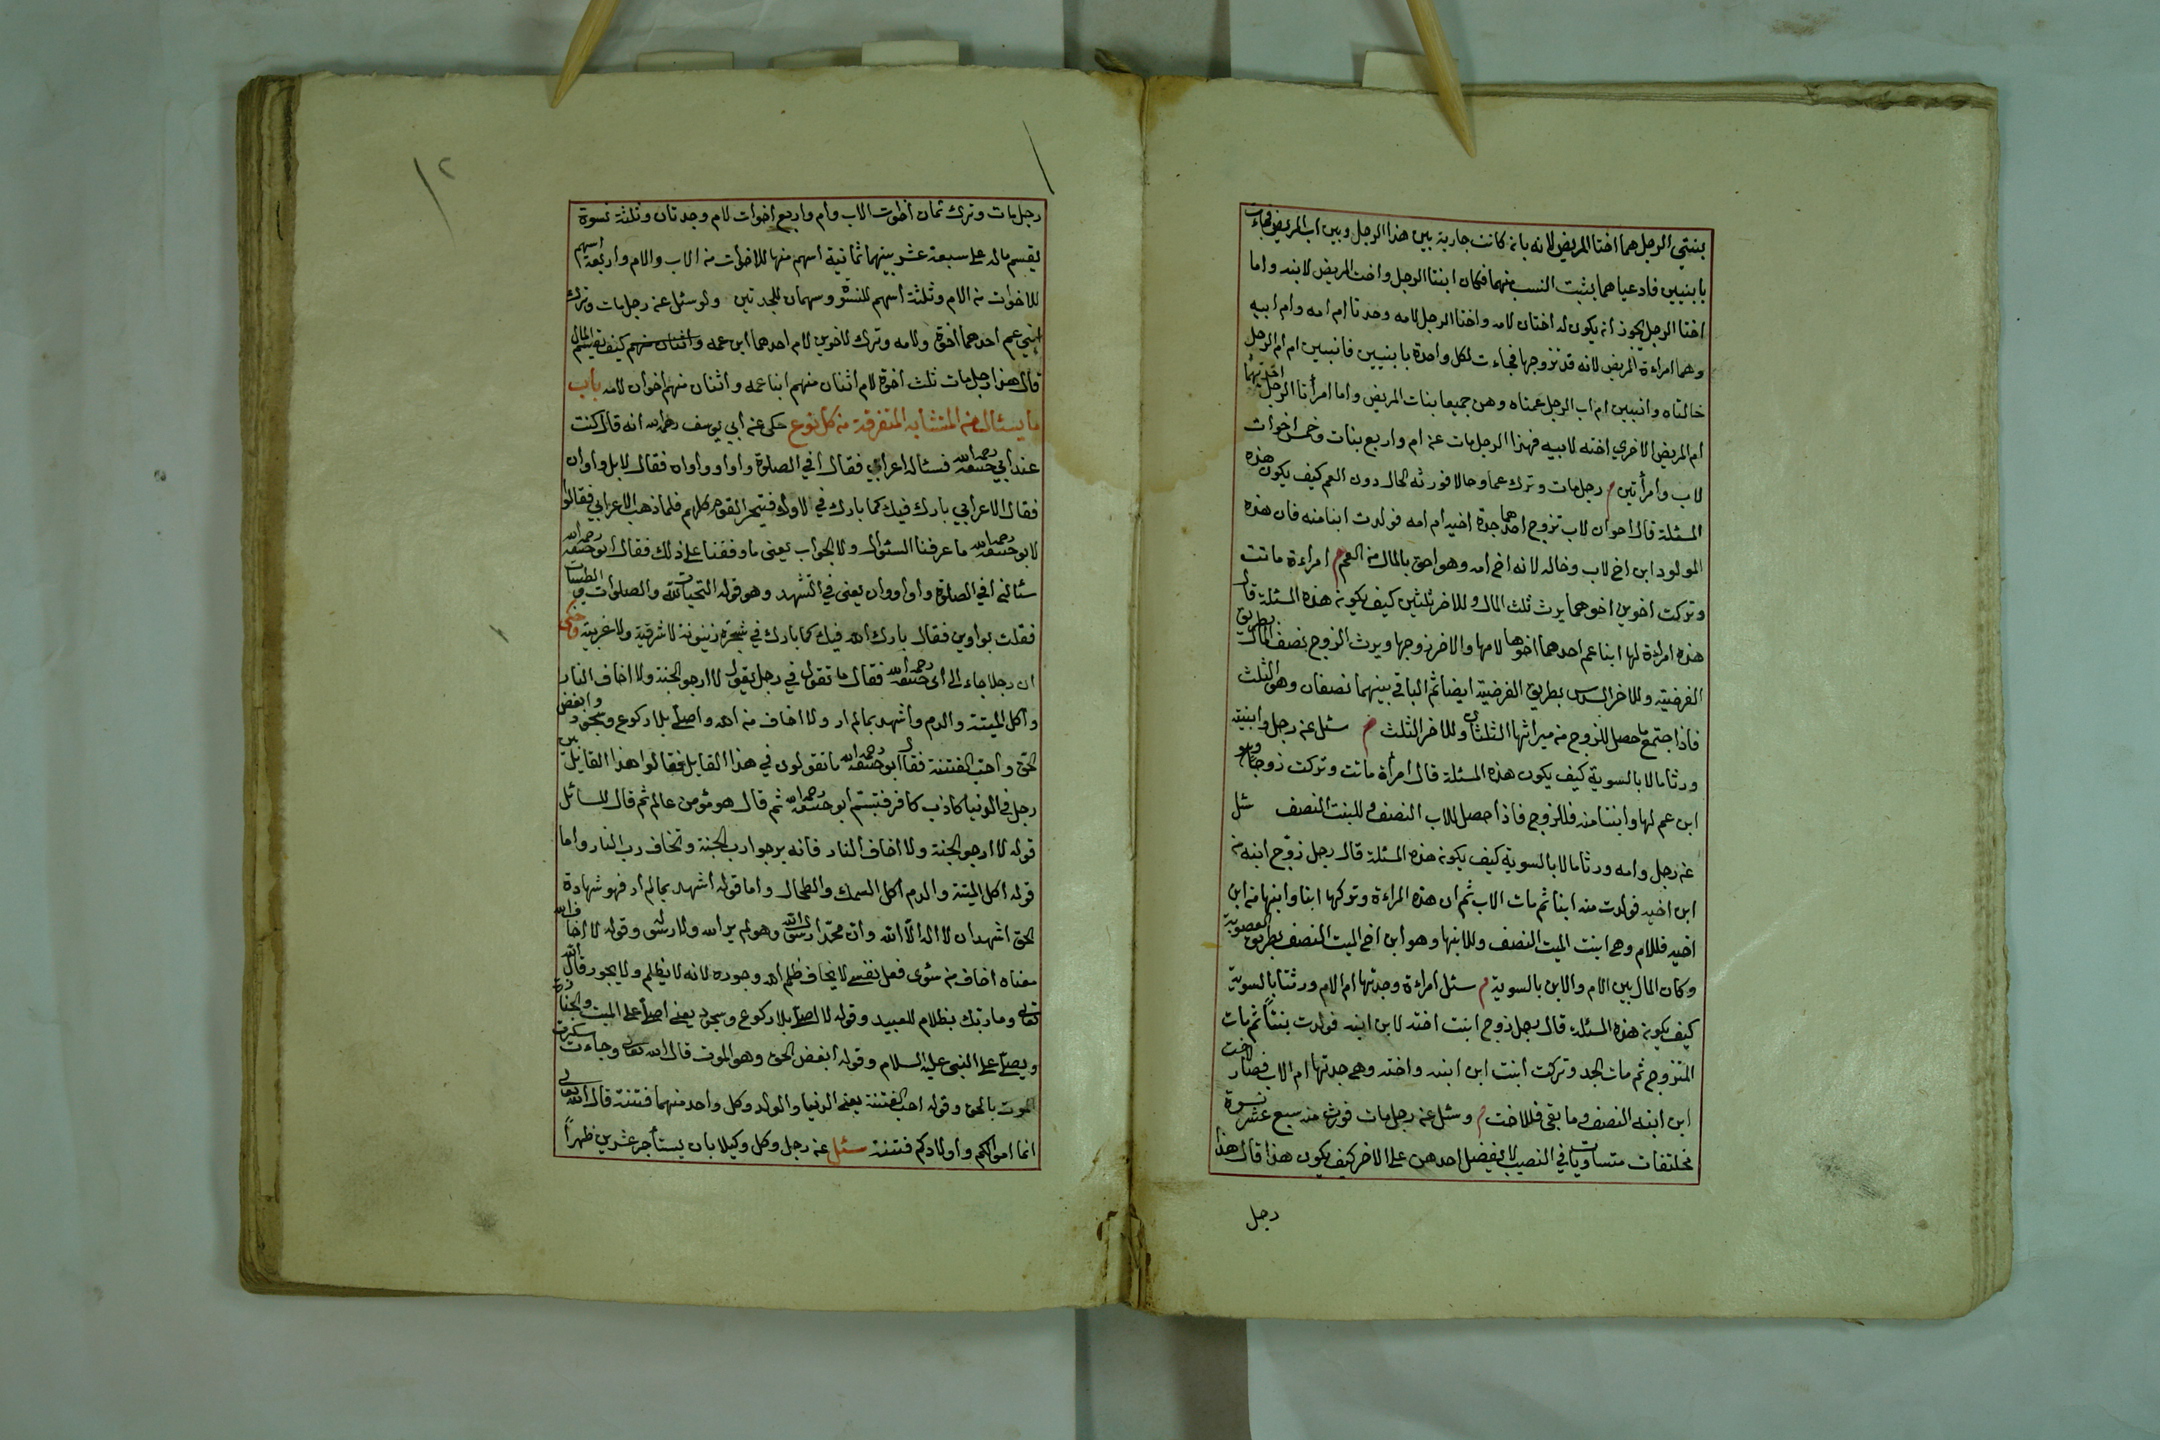 بنتي الرجل هما اختا المريض لانه بان كانت جارية بين هذا الرجل وبين اب المريض فجاءت
بابنتين فادعياها يثبت النسب منهما فكان ابنتا الرجل واخت المريض لابيه واما
اختا الرجل يجوز انه يكون له اختان لامه واختا الرجل لامه وجدتا ام امه وام ابيه
وهما امراءة المريض لانه قد تزوجها فجاءت لكل واحدة بابنتين فابنتين ام ام الرجل
خالتاه وابنتين ام اب الرجل عمتاه وهن جميعا بنات المريض واما امرأتا الرجل احديهما
ام المريض الاخري اخته لابيه فهذا الرجل مات عن ام واربع بنات وخمس اخوات
لاب وامرأتين م رجل مات وترك عما وخالا فورثه الخال دون العم كيف يكون هذه
المسئلة قال اخوان لاب تزوج احدهما جدة اخيه ام امه فولدت ابنا منه فان هذه
المولود ابن اخ لاب وخاله لانه اخ امه وهو احق بالمال من العم م امراءة ماتت
وتركت اخوين احدهما يرث ثلث المال وللاخر ثلثين كيف يكون هذه المسئلة قال
هذه امراءة لها ابنا عم احدهما اخوها لامها والاخر زوجها ويرث الزوج نصف المال بطريق
الفرضية وللاخر السدس بطريق الفرضية ايضا ثم الباقي بينهما نصفان وهو الثلث
فاذا اجتمع ما حصل للزوج من ميراثها الثلثان وللاخر الثلث م سئل عن رجل وابنته
ورثا مالا بالسوية كيف يكون هذه المسئلة قال امرأة ماتت وتركت زوجا وهو
ابن عم لها وابنتا منه فللزوج فاذا حصل للاب النصف وللبنت النصف سئل
عن رجل وامه ورثا مالا بالسوية كيف يكون هذه المسئلة قال رجل زوج ابنته من
ابن اخيه فولدت منه ابنا ثم مات الاب ثم ان هذه المراءة وتركها ابنا وابنها من ابن
اخيه فللام وهي ابنت الميت النصف وللابنها وهو ابن اخ الميت النصف بطريق العصوبة
وكان المال بين الام والابن بالسوية م سئل امراءة وجدتها ام الام ورثتا بالسوية
كيف يكون هذه المسئلة قال رجل زوج ابنت اخته لابن ابنه فولدت بنتا ثم مات
المتزوج ثم مات الجد وتركت ابنت ابن ابنه واخته وهي جدتها ام الاب فصار لابنت
ابن ابنه النصف وما بقي فللاخت م وسئل عن رجل مات فورث منه سبع عشر نسوة
مختلفات متساويات في النصيب لا يفضل احدهن على الاخر كيف يكون هذا قال هذا
رجل
رجل مات وترك ثمان اخوت الاب وام واربع اخوات لام وجدتان وثلثة نسوة
يقسم ماله على سبعة عشر بينهما ثمانية اسهم منها للاخوات من الاب والام واربعة اسهم
للاخوات من الام وثلثة اسهم للنسوة وسهمان للجدتين ولو سئل عن رجل مات وترك
ابني عم احدهما اخوة ولامه وترك لاخوين لام احدهما ابن عمه واثنان منهم كيف تقسيم المال
قال هذا رجل مات ثلث اخوة لام اثنان منهم ابنا عمه واثنان منهم اخوان لامه باب
ما يسئال من المتشابه المتفرقة من كل نوع حكى عن ابي يوسف رحمه الله انه قال كنت
عند ابي حنيفة رحمه الله فسئاله اعرابي فقال افي الصلوة واو او واواه فقال لا بل واوان
فقال الاعرابي بارك فيك كما بارك في لاولا فتيحر القوم كلهم فلما ذهب الاعرابي فقالوا
لابو حنيفة رحمه الله ما عرفنا السئوال ولا الجواب يعني ما وقفنا على ذلك فقال ابو حنيفة رحمه الله
سئالني افي الصلوة واو او واوان يعني في التشهد وهو قوله التحيات لله والصلوات والطيبات
فقلت بواوين فقال بارك الله فيك كما بارك في شجرة زيتونة لا شرقية ولا غربية وحكى
ان رجلا جاء الى ابي حنيفة رحمه الله فقال ما تقول في رجل يقول لا ارجو الجنة ولا اخاف النار
واكل الميتة والدم واشهد بما لم ار ولا اخاف من الله واصلي بلا ركوع وسجود وابغض
الحق واحب الفتنة فقال ابو حنيفة رحمه الله ما تقولون في هذا القايل فقالوا هذا القايل
رجل في الدنيا كاذب كافر فتبسم ابو حنيفة رحمه الله ثم قال هو مؤمن عالم ثم قال للسائل
قوله لا ارجو الجنة ولا اخاف النار فانه يرجوا رب الجنة وتخاف رب النار واما
قوله اكل الميتة والدم اكل السمك والطحال واما قوله اشهد بما لم ار فهو شهادة
الحق اشهد ان لا اله الا الله وان محمدا رسول الله وهو لم ير الله ولا رسوله وقوله لا اخاف الله
معناه اخاف من سوى فعل نفسي لا يخاف ظلم الله وجوره لانه لا يظلم ولا يجور قال الله
تعالى وما ربك بظلام للعبيد وقوله لا اصلي بلا ركوع وسجود يعني اصلي على الميت والجنازة
ويصلي على النبي عليه السلام وقوله ابغض الحق وهو الموت قال الله تعالى وجاءت سكرت
الموت بالحق وقوله احب الفتنة يعني الدنيا والولد وكل واحد منهما فتنة قال الله تعالى
انما اموالكم واولادكم فتنة سئل عن رجل وكل وكيلا بان يستأجر عشرين ظهرا